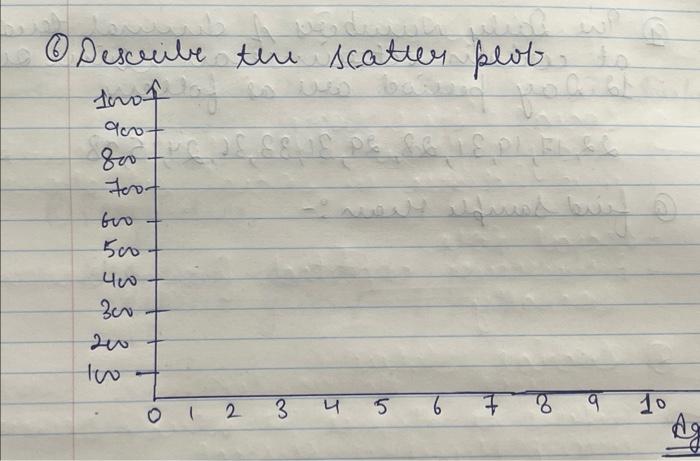 ⑥ Describe the scatter plot
1000
900
800
700
600
500
400
300
200
100
0 1 2 3 4 5 6 7 8 9 10
Ag